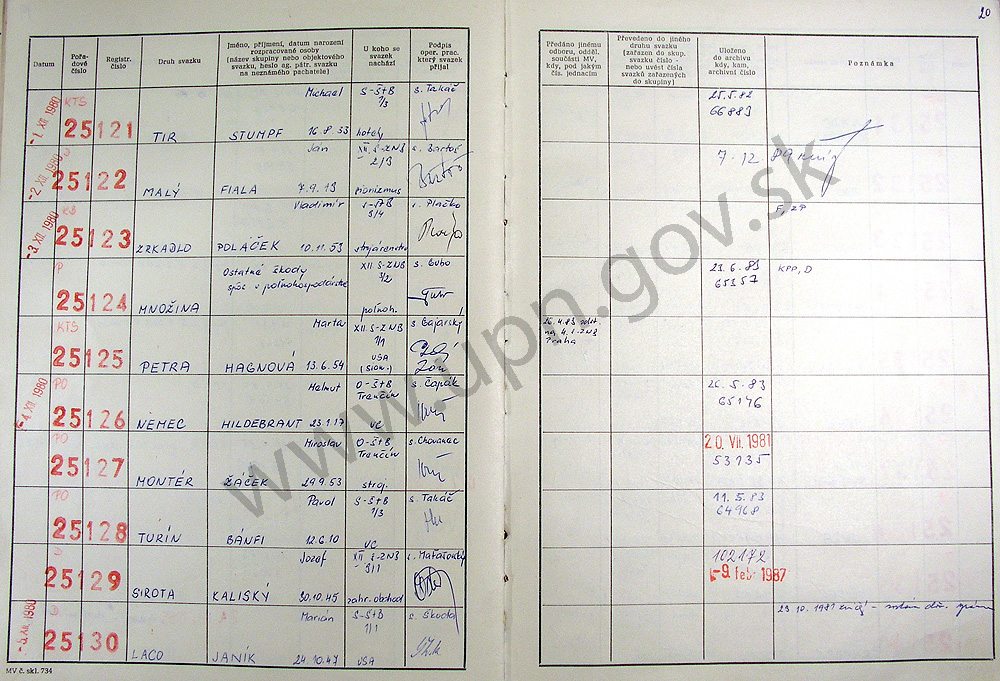 20
Datum
Pořa-
dové
číslo
Registr.
číslo
Druh svazku
Jméno, příjmení, datum narození
rozpracované osoby
(název skupiny nebo objektového
svazku, heslo ag. pátr. svazku
na neznámého pachatele)
U koho se
svazek
nachází
Podpis
oper. prac.
který svazek
přijal
Předáno jinému
odboru, odděl.
součásti MV,
kdy, pod jakým
čís. jednacím
Převedeno do jiného
druhu svazku
(zařazen do skup.
svazku číslo -
nebo uvést čísla
svazků zařazených
do skupiny)
Uloženo
do archivu
kdy, kam,
archivní číslo
Poznámka
-1. XII. 1980
KTS
25121
TIR
Michael
STUMPF 16.8.33
S-ŠtB
1/3
hotely
s. Takáč
25.5.82
66883
-2. XII. 1980
25122
MALÝ
Ján
FIALA 7.9.13
XII. S-ZNB
2/3
sionizmus
s. Bartoš
7.12.89
-3. XII. 1980
25123
ZRKADLO
Vladimír
POLÁČEK 10.11.53
3/4
strojárenstvo
s. Plačko
P
25124
MNOŽINA
Ostatné škody
spôs. v poľnohospodárstve
XII. S-ZNB
3/2
poľnoh.
s. Gubo
65357
KPP, D
KTS
25125
PETRA
Marta
HAGNOVÁ 13.6.54
XII. S-ZNB
1/1
USA
s. Gajarský
Praha
-4. XII. 1980
PO
25126
NEMEC
Helmut
HILDEBRANT 23.1.17
O-ŠtB
Trenčín
VC
s. Čapák
26.5.83
65146
PO
25127
MONTÉR
Miroslav
ŽÁČEK 29.9.53
O-ŠtB
Trenčín
stroj.
s. Chovanec
20. VII. 1981
53735
PO
25128
TURÍN
Pavol
BÁNFI 12.6.10
S-ŠtB
1/3
VC
s. Takáč
11.5.83
64968
D
25129
SIROTA
Jozef
KALISKÝ 30.10.45
XII. S-ZNB
3/1
zahr. obchod
102172
-9. feb. 1987
-5. XII. 1980
D
25130
LACO
Marián
JANÍK 24.10.47
S-ŠtB
1/1
USA
s. Škoda
MV č. skl. 734
www.upn.gov.sk